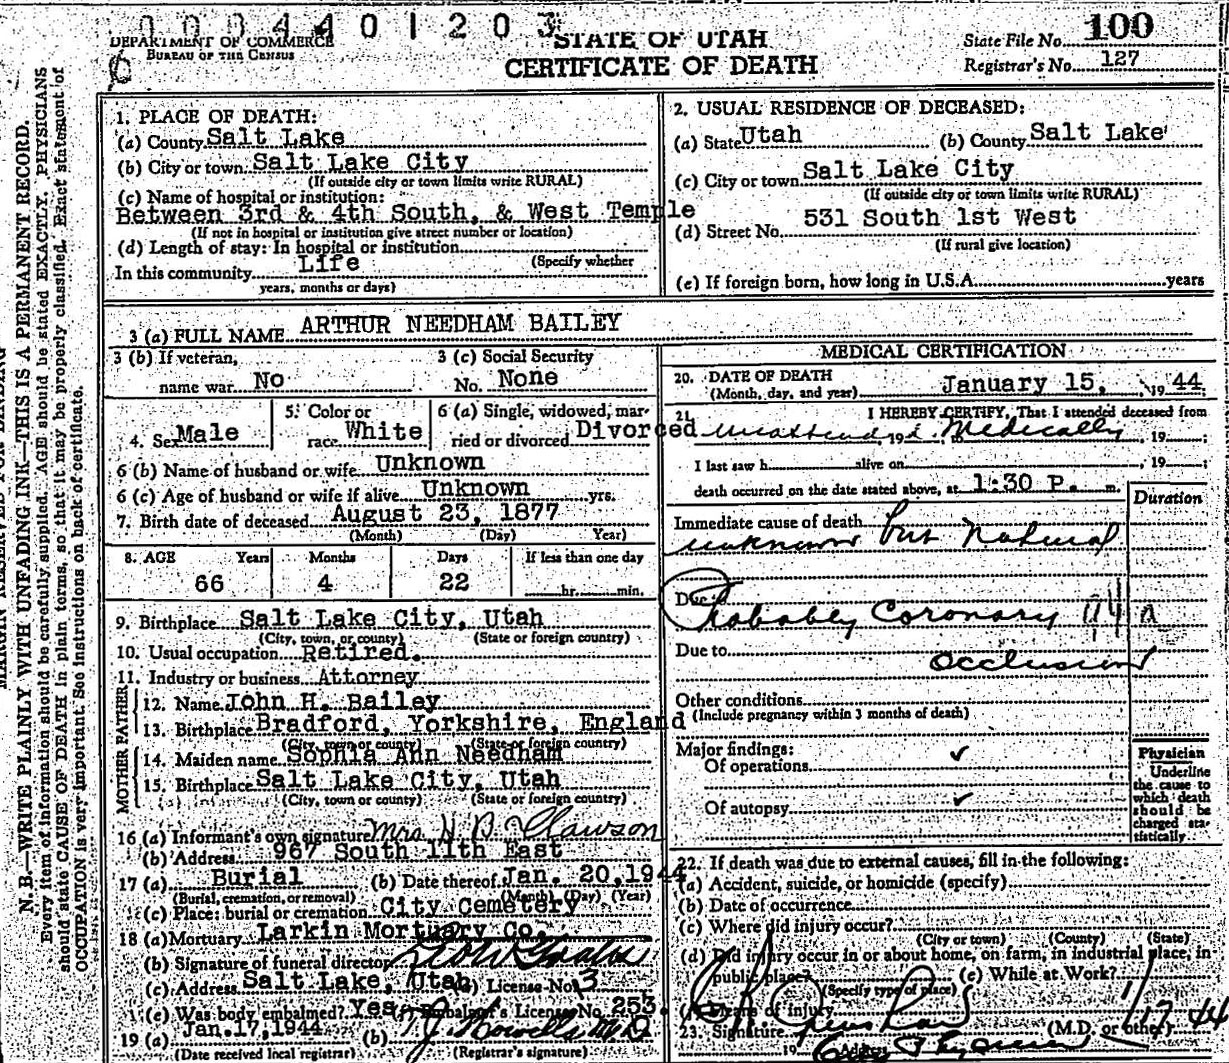 0004401203
DEPARTMENT OF COMMERCE
BUREAU OF THE CENSUS
STATE OF UTAH
CERTIFICATE OF DEATH
State File No. 100
Registrar's No. 127
N. B.—WRITE PLAINLY WITH UNFADING INK—THIS IS A PERMANENT RECORD.
Every item of information should be carefully supplied. AGE should be stated EXACTLY. PHYSICIANS
should state CAUSE OF DEATH in plain terms, so that it may be properly classified. Exact statement of
OCCUPATION is very important. See instructions on back of certificate.
1. PLACE OF DEATH:
(a) County Salt Lake
(b) City or town Salt Lake City
(If outside city or town limits write RURAL)
(c) Name of hospital or institution:
Between 3rd & 4th South, & West Temple
(If not in hospital or institution give street number or location)
(d) Length of stay: In hospital or institution
(Specify whether
In this community Life
years, months or days)
2. USUAL RESIDENCE OF DECEASED:
(a) State Utah (b) County Salt Lake
(c) City or town Salt Lake City
(If outside city or town limits write RURAL)
(d) Street No. 531 South 1st West
(If rural give location)
(e) If foreign born, how long in U.S.A. years
3 (a) FULL NAME ARTHUR NEEDHAM BAILEY
3 (b) If veteran, name war No
3 (c) Social Security No. None
4. Sex Male
5. Color or race White
6 (a) Single, widowed, married or divorced Divorced
6 (b) Name of husband or wife Unknown
6 (c) Age of husband or wife if alive Unknown yrs.
7. Birth date of deceased August 23, 1877
(Month) (Day) Year)
8. AGE Years Months Days If less than one day
66 4 22 hr. min.
9. Birthplace Salt Lake City, Utah
(City, town, or county) (State or foreign country)
10. Usual occupation Retired.
11. Industry or business Attorney
FATHER
12. Name John H. Bailey
13. Birthplace Bradford, Yorkshire, England
(City, town or county) (State or foreign country)
MOTHER
14. Maiden name Sophia Ann Needham
15. Birthplace Salt Lake City, Utah
(City, town or county) (State or foreign country)
16 (a) Informant's own signature Mrs H B Clawson
(b) Address 967 South 11th East
17 (a) Burial (b) Date thereof Jan. 20, 1944
(Burial, cremation, or removal) (Month) (Day) (Year)
(c) Place: burial or cremation City Cemetery
18 (a) Mortuary Larkin Mortuary Co.
(b) Signature of funeral director
(c) Address Salt Lake, Utah License No. 3
(e) Was body embalmed? Yes Embalmer's License No. 253.
19 (a) Jan. 17, 1944 (b)
(Date received local registrar) (Registrar's signature)
MEDICAL CERTIFICATION
20. DATE OF DEATH January 15, 1944
(Month, day, and year)
21. I HEREBY CERTIFY, That I attended deceased from
Unattended Medically, 19
I last saw h alive on , 19
death occurred on the date stated above, at 1:30 P. m.
Duration
Immediate cause of death
unknown but Natural
Due
Probably Coronary
Due to Occlusion
Other conditions
(Include pregnancy within 3 months of death)
Major findings:
Of operations ✓
Of autopsy ✓
Physician
Underline
the cause to
which death
should be
charged sta-
tistically.
22. If death was due to external causes, fill in the following:
(a) Accident, suicide, or homicide (specify)
(b) Date of occurrence
(c) Where did injury occur?
(City or town) (County) (State)
(d) Did injury occur in or about home, on farm, in industrial place, in
public place? (e) While at Work?
(Specify type of place)
Means of injury
23. Signature (M.D. or other) 1/17 44
Physician